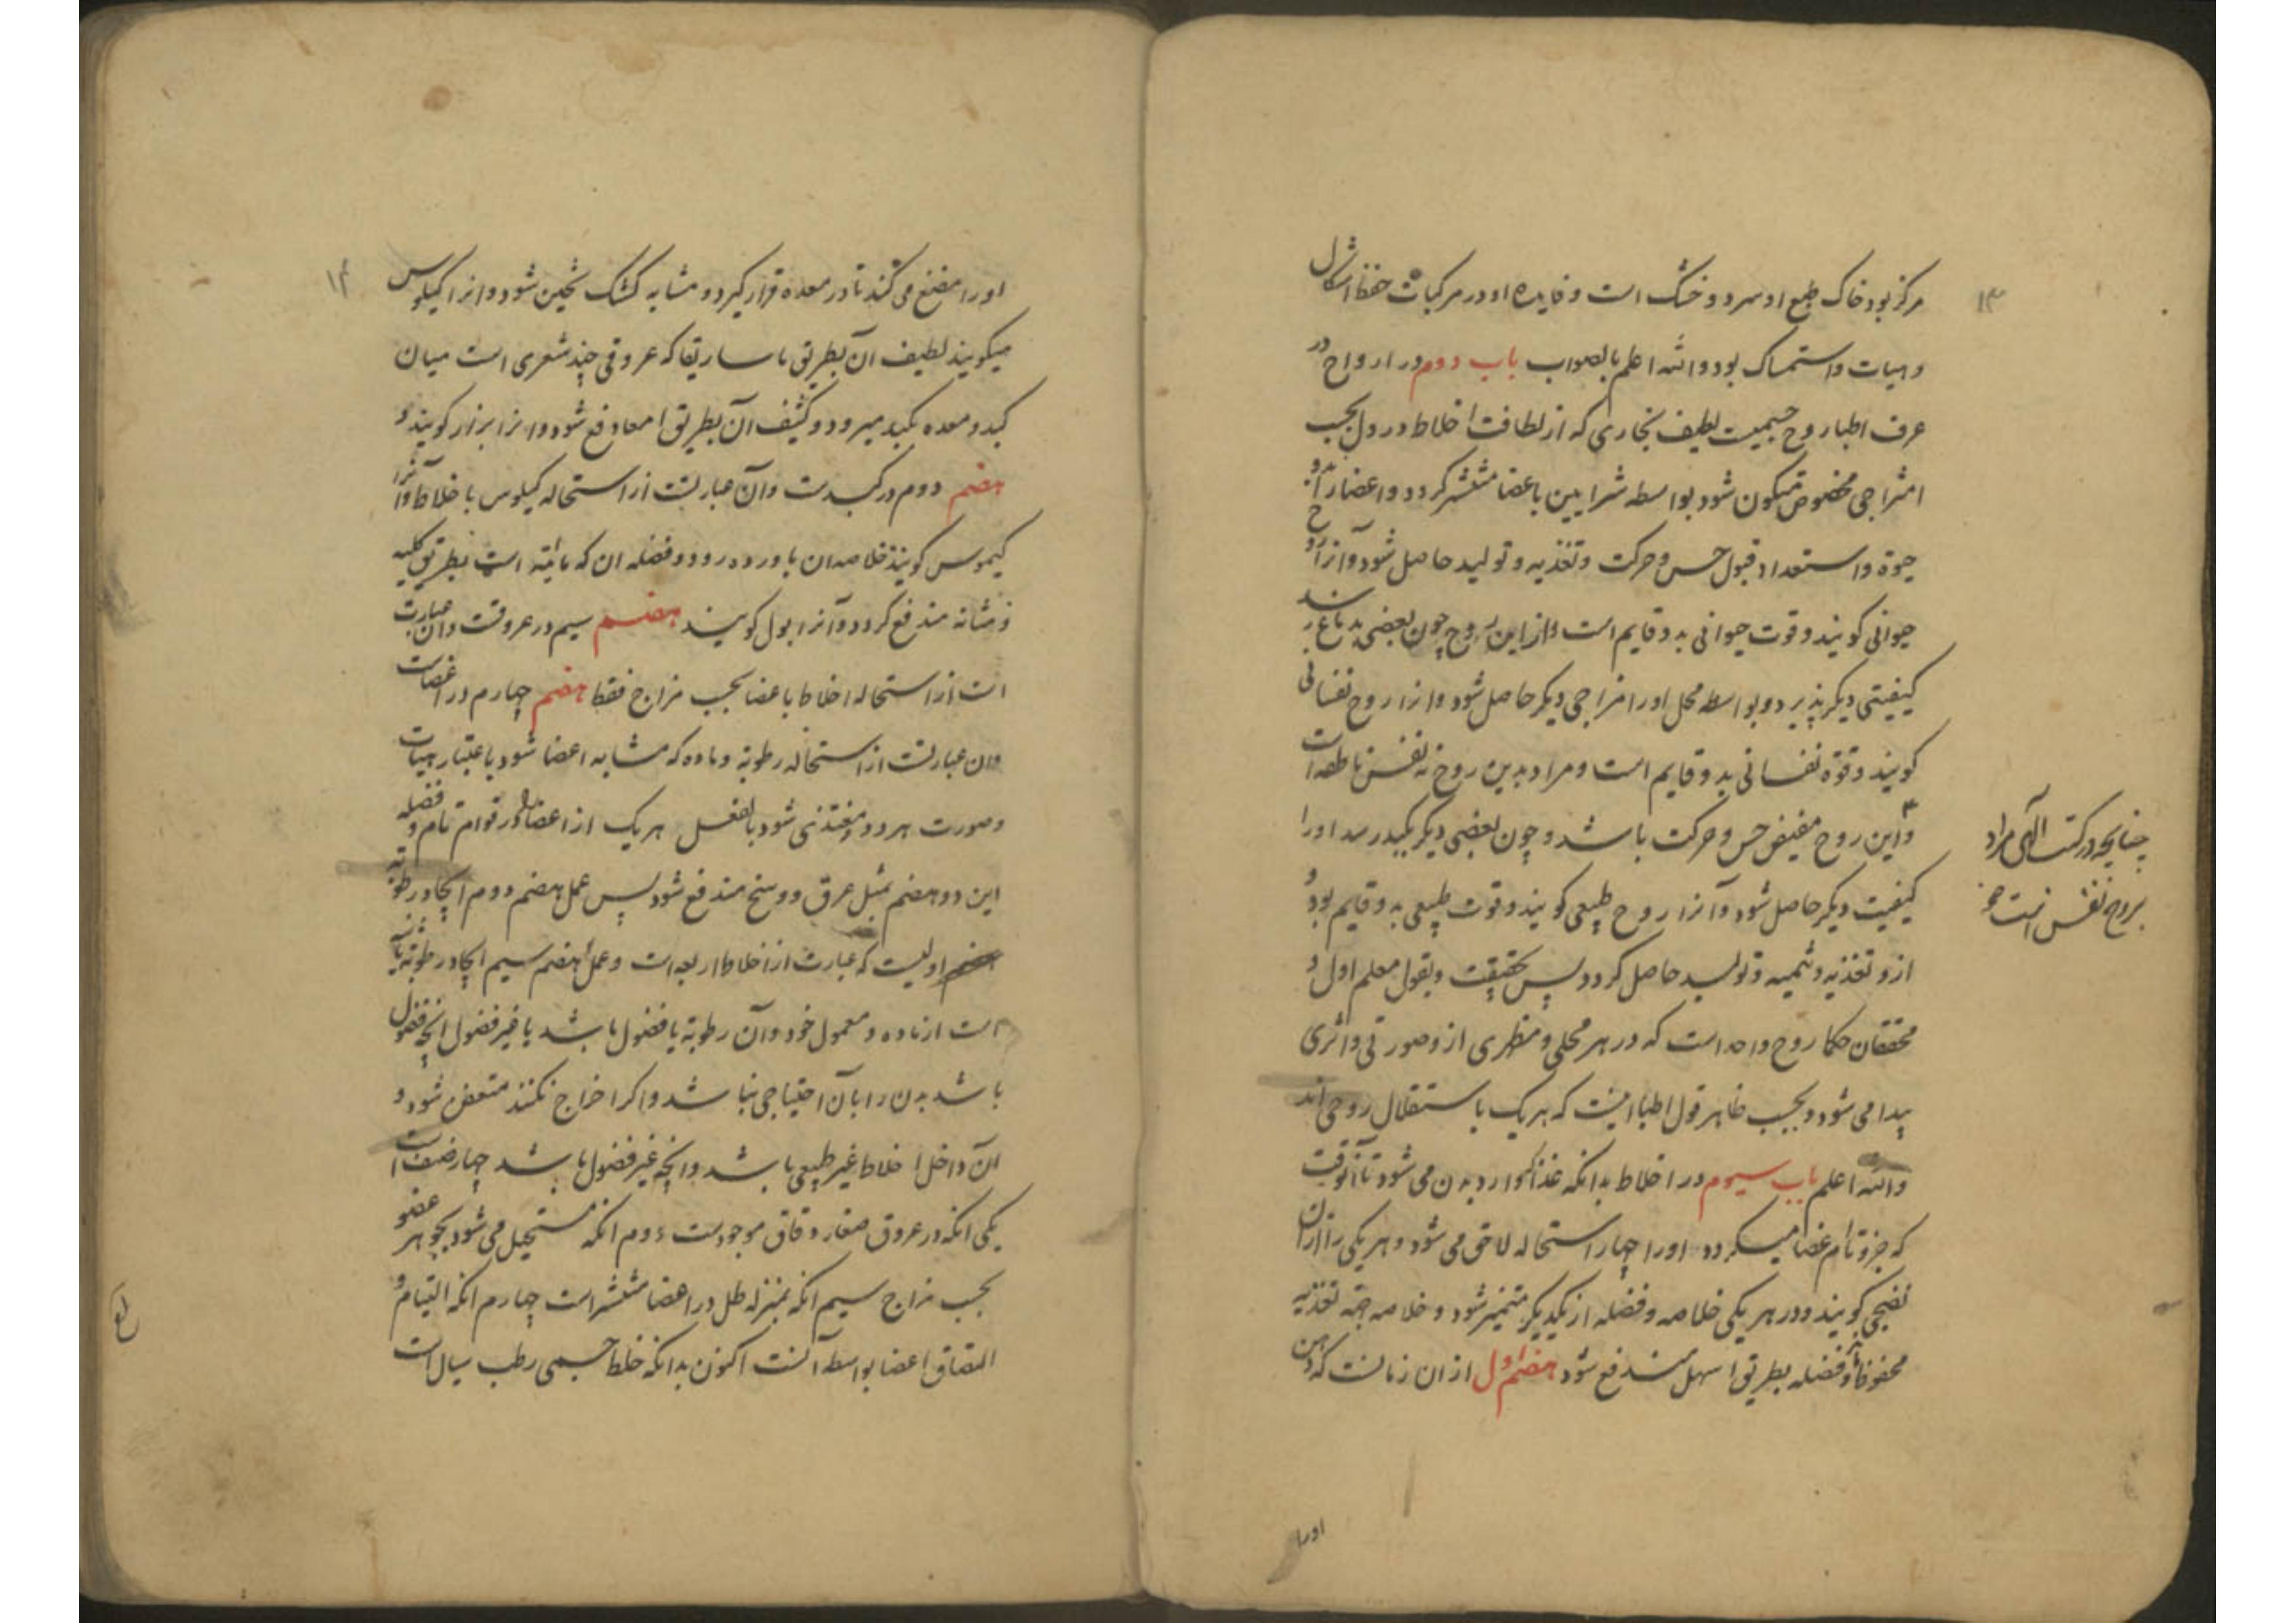 ۱۳
مرکز بود خاک طبع او سرد و خشک است و فایده او در مرکبات حفظ اشکال
و هیات و استمساک بود والله اعلم بالصواب باب دوم در ارواح در
عرف اطبا روح جسمیست لطیف بخاری که از لطافت اخلاط در دل بحسب
امتزاجی مخصوص متکون شود بواسطه شرایین باعضا منتشر کردد و اعضا را
حیوة و استعداد قبول حس و حرکت و تغذیه و تولید حاصل شود و آنرا روح
حیوانی کویند و قوت حیوانی بدو قایم است و از این روح چون بعضی بدماغ رسد
کیفیتی دیکر پذیرد و بواسطه محل او را مزاجی دیکر حاصل شود و انرا روح نفسانی
کویند و قوة نفسانی بدو قایم است و مراد بدین روح نه نفس ناطقه است
و این روح مفیض حس و حرکت باشد و چون بعضی دیکر بکبد رسد او را
کیفیت دیکر حاصل شود و آنرا روح طبیعی کویند و قوت طبیعی بدو قایم بود و
ازو تغذیه و تنمیه و تولید حاصل کردد پس بحقیقت و بقول معلم اول و
محققان حکما روح واحد است که در هر محلی و منظری ازو صورتی و اثری
پیدا می شود و بحسب ظاهر قول اطبا اینست که هر یک باستقلال روحی اند
والله اعلم باب سیوم در اخلاط بدانکه غذا که وارد بدن می شود تا آنوقت
که جزو تام اعضا میکردد او را چهار استحاله لاحق می شود و هر یکی را از آن
نضجی کویند و در هر یکی خلاصه و فضله از یکدیکر متمیز شود و خلاصه جهة تغذیه
محفوظ و فضله بطریق اسهل مندفع شود هضم اول از ان زمانست که دهن
چنانچه در کتب الهی مراد
بروح نفس است
اورا
۱۴
اورا مضغ می کند تا در معده قرار کیرد و مشابه کشک ثخین شود و انرا کیلوس
میکویند لطیف آن بطریق ماساریقا که عروقی چند شعری است میان
کبد و معده بکبد میرود و کثیف آن بطریق امعا دفع شود و انرا براز کویند و
هضم دوم در کبدست و آن عبارتست از استحاله کیلوس با خلاط و آنرا
کیموس کویند خلاصه ان باورده رود و فضله ان که مائیة است بطریق کلیه
و مثانه مندفع کردد و آنرا بول کویند هضم سیم در عروقست و آن عبارت
است از استحاله اخلاط باعضا بحسب مزاج فقط هضم چهارم در اعضاست
و ان عبارتست از استحاله رطوبة و ماده که مشابه اعضا شود باعتبار هیات
و صورت هر دو و مغتذی شود بالفعل هر یک از اعضا در قوام تام و فضله
این دو هضم بمثل عرق و وسخ مندفع شود پس عمل هضم دوم ایجاد رطوبة
اولیست که عبارت از اخلاط اربعه است و عمل هضم سیم ایجاد رطوبة ثانیه
است از ماده و معمول خود و آن رطوبة یا فضول باشد یا غیر فضول انچه فضول
باشد بدن را بآن احتیاجی نباشد و اکر اخراج نکنند متعفن شود و
آن داخل اخلاط غیر طبیعی باشد و انچه غیر فضول باشد چهار صنف است
یکی انکه در عروق صغار و قاق موجودست دوم انکه مستحیل می شود بجوهر عضو
بحسب مزاج سیم انکه بمنزله طل در اعضا منتشر است چهارم انکه التیام و
التصاق اعضا بواسطه آنست اکنون بدانکه خلط جسمی رطب سیال است